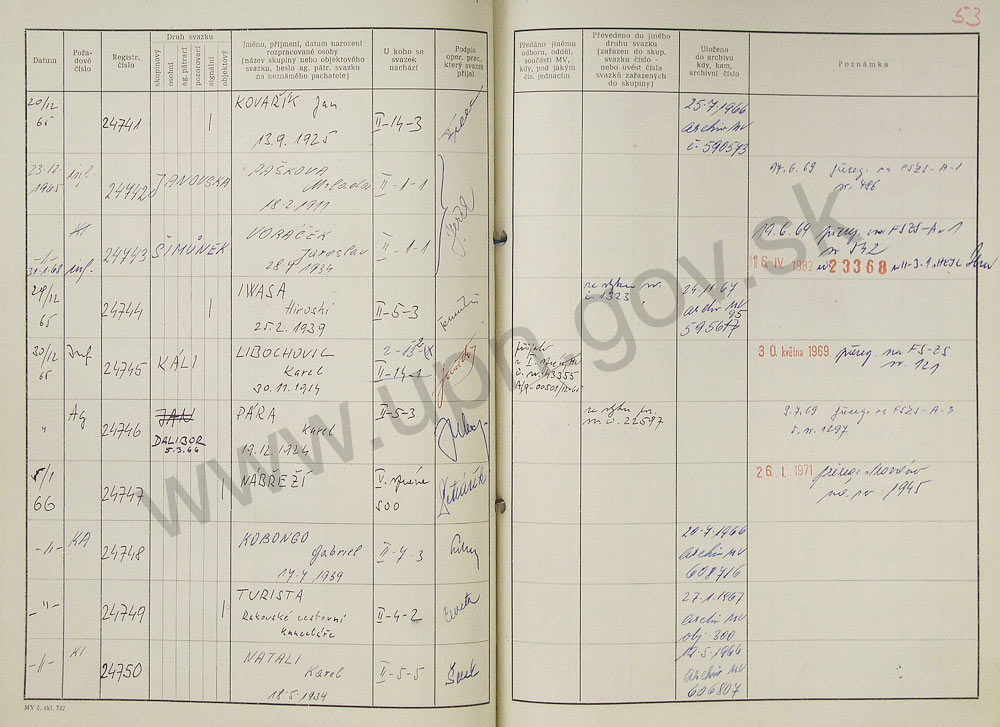 53
Datum
Pořa-
dové
číslo
Registr.
číslo
Druh svazku
skupinový
osobní
ag. pátrací
pozorovací
signální
objektový
Jméno, příjmení, datum narození
rozpracované osoby
(název skupiny nebo objektového
svazku, heslo ag. pátr. svazku
na neznámého pachatele)
U koho se
svazek
nachází
Podpis
oper. prac.,
který svazek
přijal
Předáno jinému
odboru, odděl.
součásti MV,
kdy, pod jakým
čís. jednacím
Převedeno do jiného
druhu svazku
(zařazen do skup.
svazku číslo -
nebo uvést čísla
svazků zařazených
do skupiny)
Uloženo
do archivu
kdy, kam,
archivní číslo
Poznámka
20/12
65
24741
KOVAŘÍK Jan
13.9.1925
II-14-3
25.7.1966
archiv MV
č. 590573
23.12.
1965
inf.
24742
JANOVSKA
PAŠKOVA
Milada
18.2.1911
II-1-1
17.6.69 přereg. na FSZS-A-1
nr. 486
-II-
31.1.68
inf.
24743
ŠIMŮNEK
VORÁČEK
Jaroslav
28.4.1934
II-1-1
19.6.69 přereg. na FSZS-A-1
nr 542
16 IV. 1982
23368
29/12
65
24744
IWASA
Hiroshi
25.2.1939
II-5-3
ze styku nr.
č. 1323
24.11.67
archiv MV
595677
30/12
65
Inf.
24745
KALI
LIBOCHOVIL
Karel
30.11.1914
II-14-1
30. května 1969
přereg. na FS-ZS
nr. 121
"
Ag
24746
JAN
DALIBOR
5.3.66
PÁRA
Karel
19.12.1924
II-5-3
ze styku
nr. č. 22597
9.7.69 přereg. na FSZS-A-3
1297
5/1
66
24747
NÁBŘEŽÍ
V. správa
500
26. I. 1971
1945
-II-
KA
24748
KOBONGO
Gabriel
17.7.1939
II-7-3
20.7.1966
archiv MV
608716
-II-
24749
TURISTA
Rakouské cestovní
kanceláře
II-4-2
27.1.1967
archiv MV
obj. 300
-II-
KI
24750
NATALI
Karel
18.5.1934
II-5-5
19.5.1966
archiv MV
606807
MV č. skl. 732
www.upn.gov.sk